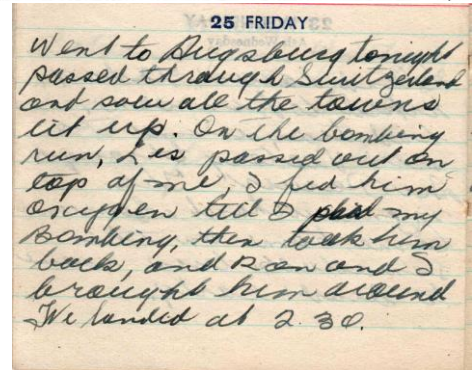 25 FRIDAY
Went to Augsburg tonight
passed through Switzerland
and saw all the towns
lit up. On the bombing
run, Les passed out on
top of me, I fed him
oxygen till I did my
Bombing, then took him
back, and Ron and I
brought him around
We landed at 2.30.